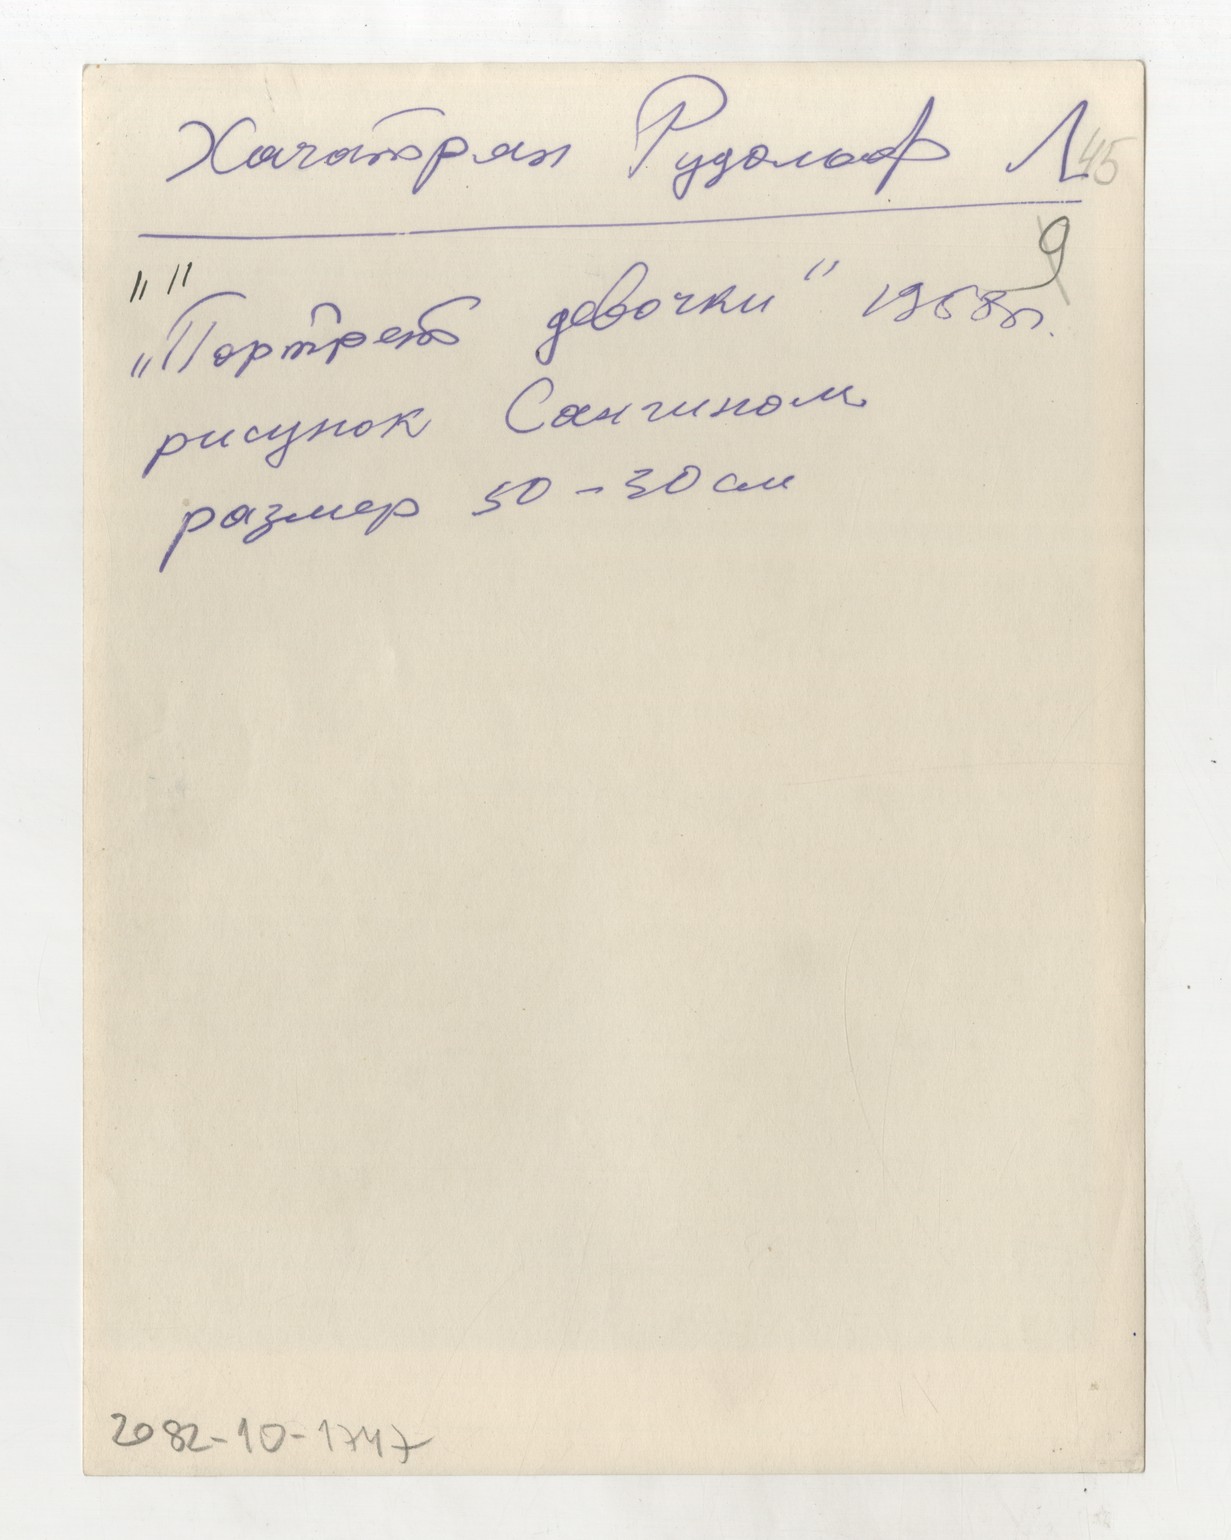 Хачатрян Рудольф Л
45
9
" "
„Портрет девочки" 1968 г.
рисунок Сангином
размер 50 – 30 см
2082-10-1747